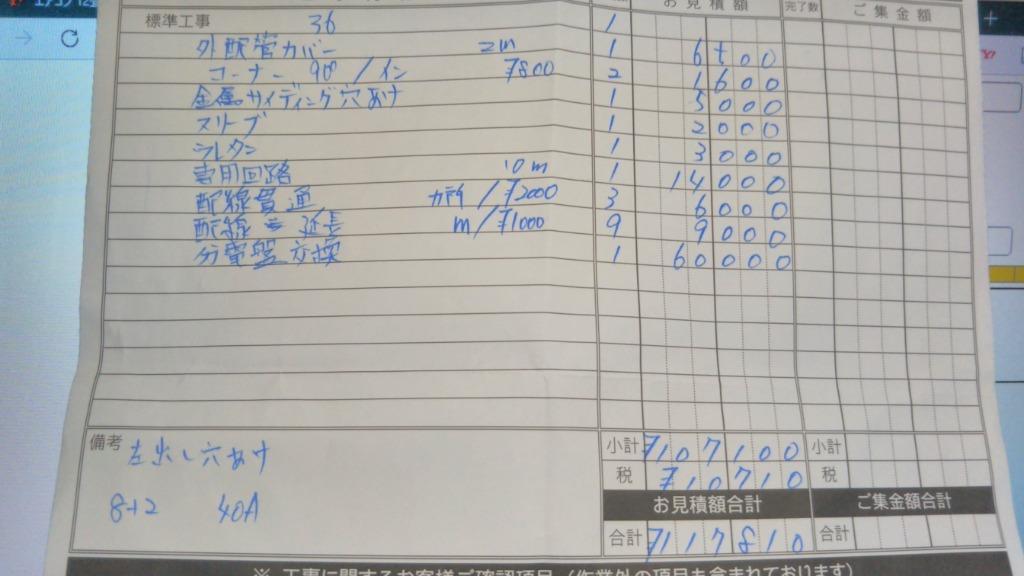 お見積額 完了数 ご集金額
標準工事 36 1
外配管カバー 2m 1 6500
コーナー 90°/イン ¥800 2 1600
金属サイディング穴あけ 1 5000
スリーブ 1 2000
ウレタン 1 3000
専用回路 10m 1 14000
配線貫通 カ所/¥2000 3 6000
配線 延長 m/¥1000 9 9000
分電盤交換 1 60000
備考 左出し穴あけ
8+2 40A
小計 ¥107100 小計
税 ¥10710 税
お見積額合計 ご集金額合計
合計 ¥117810 合計
※ 工事に関するお客様ご確認項目(作業外の項目も含まれております)